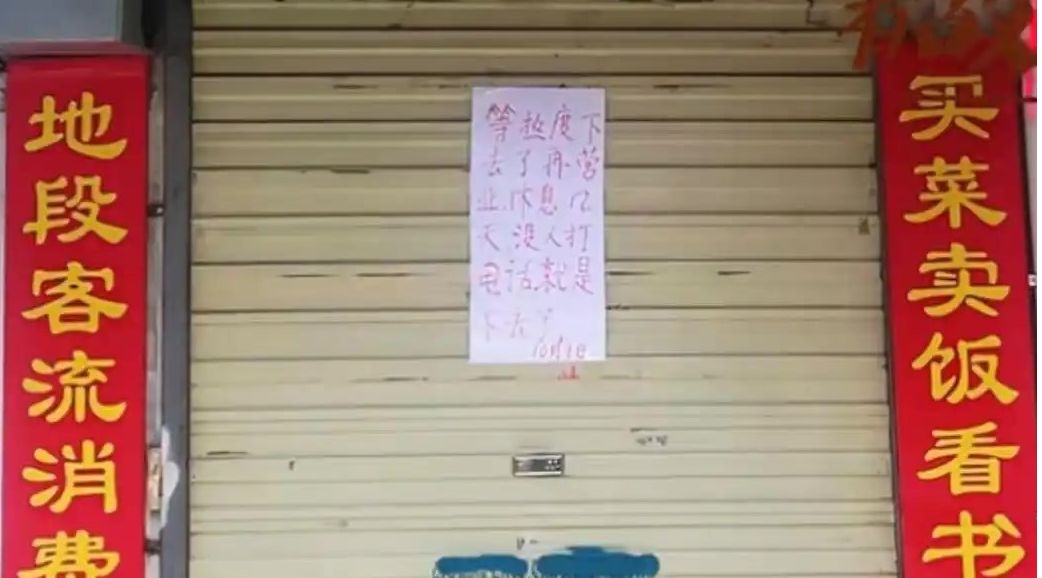 地段客流消费
等热度下
去了再营
业.休息几
天没人打
电话就是
下去了
10月1日
买菜卖饭看书